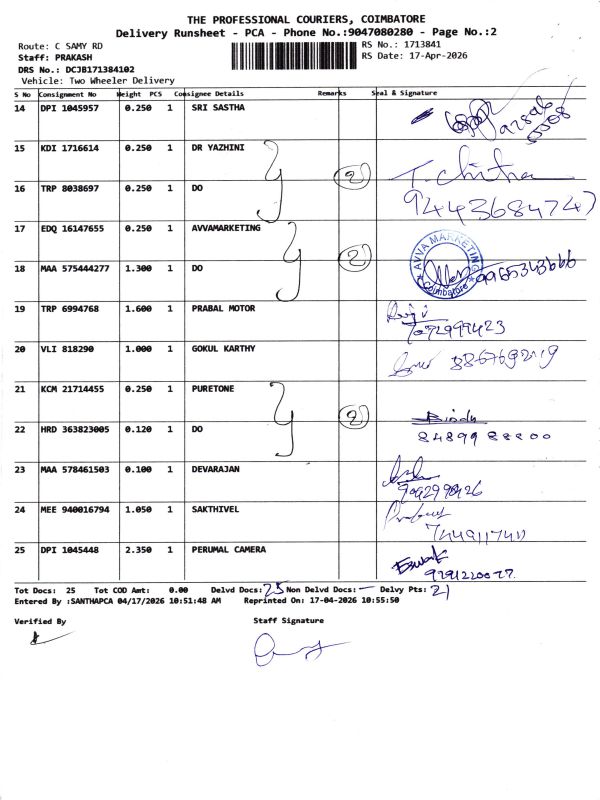 THE PROFESSIONAL COURIERS, COIMBATORE
Delivery Runsheet - PCA - Phone No.:9047080280 - Page No.:2
Route: C SAMY RD
RS No.: 1713841
Staff: PRAKASH
RS Date: 17-Apr-2026
DRS No.: DCJB171384102
Vehicle: Two Wheeler Delivery
S No Consignment No Weight PCS Consignee Details Remarks Seal & Signature
14 DPI 1045957 0.250 1 SRI SASTHA
15 KDI 1716614 0.250 1 DR YAZHINI
16 TRP 8038697 0.250 1 DO (2) T. Chitra
9443684747
17 EDQ 16147655 0.250 1 AVVAMARKETING
18 MAA 575444277 1.300 1 DO (2) AVVA MARKETING Coimbatore 9965343666
19 TRP 6994768 1.600 1 PRABAL MOTOR
7092999423
20 VLI 818290 1.000 1 GOKUL KARTHY 8867692119
21 KCM 21714455 0.250 1 PURETONE
22 HRD 363823005 0.120 1 DO (2) Bindu
8489988800
23 MAA 578461503 0.100 1 DEVARAJAN
7092998426
24 MEE 940016794 1.050 1 SAKTHIVEL
25 DPI 1045448 2.350 1 PERUMAL CAMERA
Tot Docs: 25 Tot COD Amt: 0.00 Delvd Docs: 25 Non Delvd Docs: - Delvy Pts: 21
Entered By :SANTHAPCA 04/17/2026 10:51:48 AM Reprinted On: 17-04-2026 10:55:50
Verified By Staff Signature